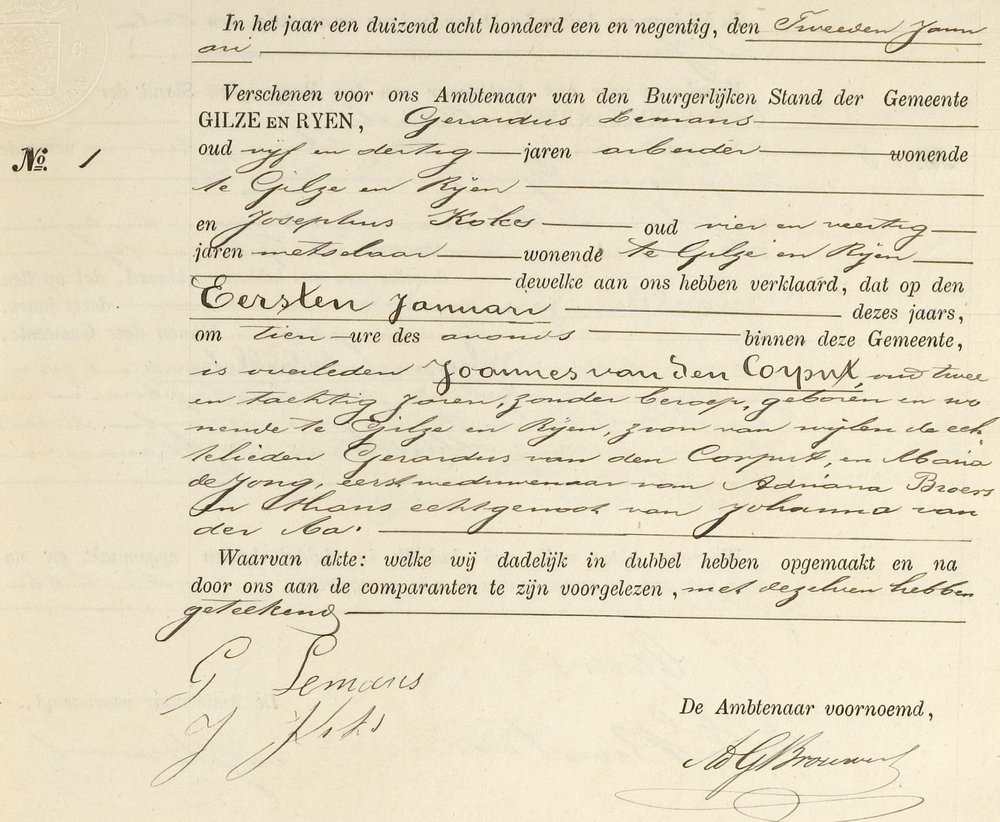 In het jaar een duizend acht honderd een en negentig, den Tweeden Janu
ari
Verschenen voor ons Ambtenaar van den Burgerlijken Stand der Gemeente
GILZE EN RYEN, Gerardus Lemans
No. 1
oud vijf en dertig jaren arbeider wonende
te Gilze en Rijen
en Josephus Kokes oud vier en veertig
jaren metselaar wonende te Gilze en Rijen
dewelke aan ons hebben verklaard, dat op den
Eersten Januari dezes jaars,
om tien ure des avonds binnen deze Gemeente,
is overleden Joannes van den Corput, oud twee
en tachtig jaren, zonder beroep, geboren en wo
nende te Gilze en Rijen, zoon van wijlen de ech
telieden Gerardus van den Corput, en Maria
de Jong, eerst weduwenaar van Adriana Broers
en thans echtgenoot van Johanna van
der Aa.
Waarvan akte: welke wij dadelijk in dubbel hebben opgemaakt en na
door ons aan de comparanten te zijn voorgelezen, met dezelven hebben
geteekend
G Lemans
J
De Ambtenaar voornoemd,